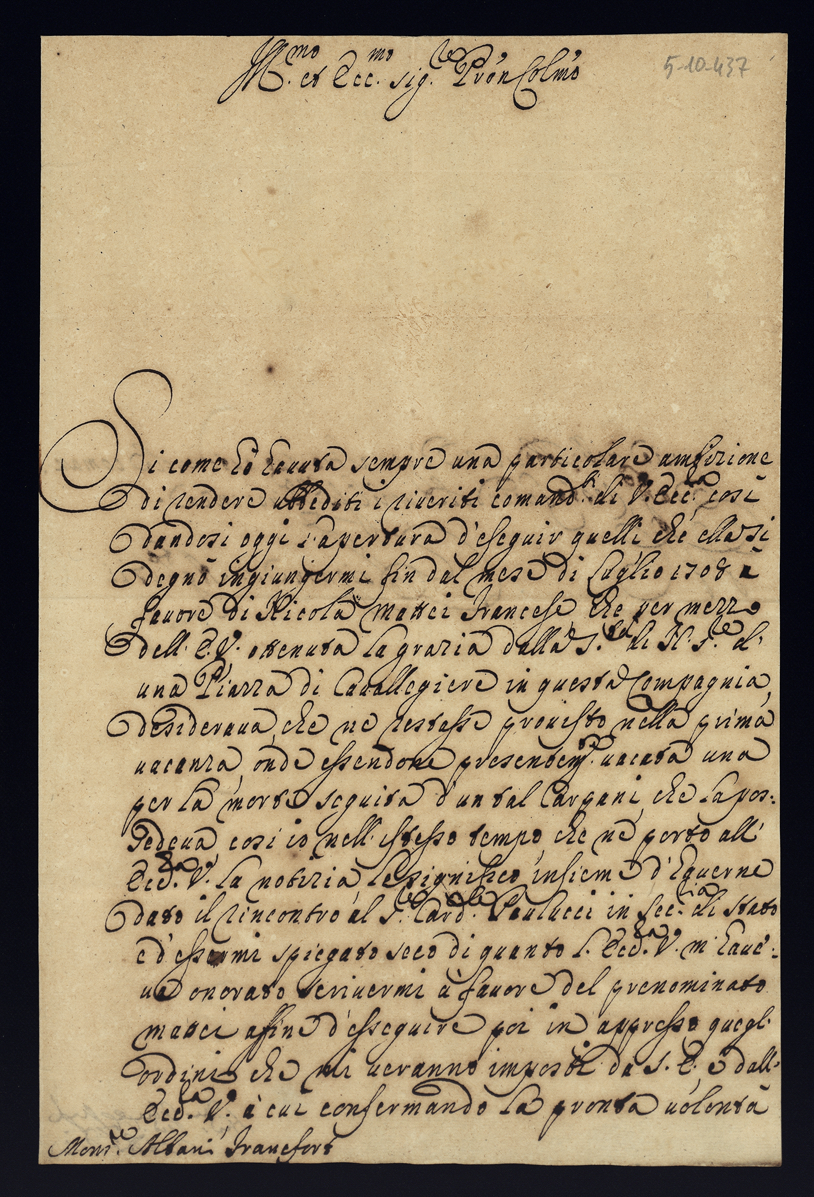 Ill.mo et Ecc.mo Sig.re Pron Colmo
5-10-437
Si come hò hauuta sempre una particolare ambizione
di rendere ubbediti i riueriti comand.i di V. Ecc.za così
dandosi oggi l'apertura d'eseguir quelli che ella si
degnò ingiungermi fin dal mese di Luglio 1708 à
fauore di Nicola Mattei Francese, che per mezzo
dell'E.V. ottenuta la grazia dalla S.tà di N. S.re d'
una Piazza di Cauallegiere in questa Compagnia,
desideraua, che ne restasse prouisto nella prima
uacanza, onde essendone presentem.te uacata una
per la morte seguita d'un tal Carpani, che la pos-
sedeua così io nell'istesso tempo, che ne porto all'
Ecc.za V. la notizia le significo insieme d'hauerne
dato il rincontro al S.r Card.le Paulucci in Sec.ria di Stato
e d'essermi spiegato seco di quanto l'Ecc.za V. m'haue-
ua onorato scriuermi à fauore del prenominato
Mattei affine d'esseguire poi in appresso quegl'
ordini che mi ueranno imposti da S. E. e dall'
Ecc.za V. à cui confermando la pronta uolontà
Mons.re Albani Francfort